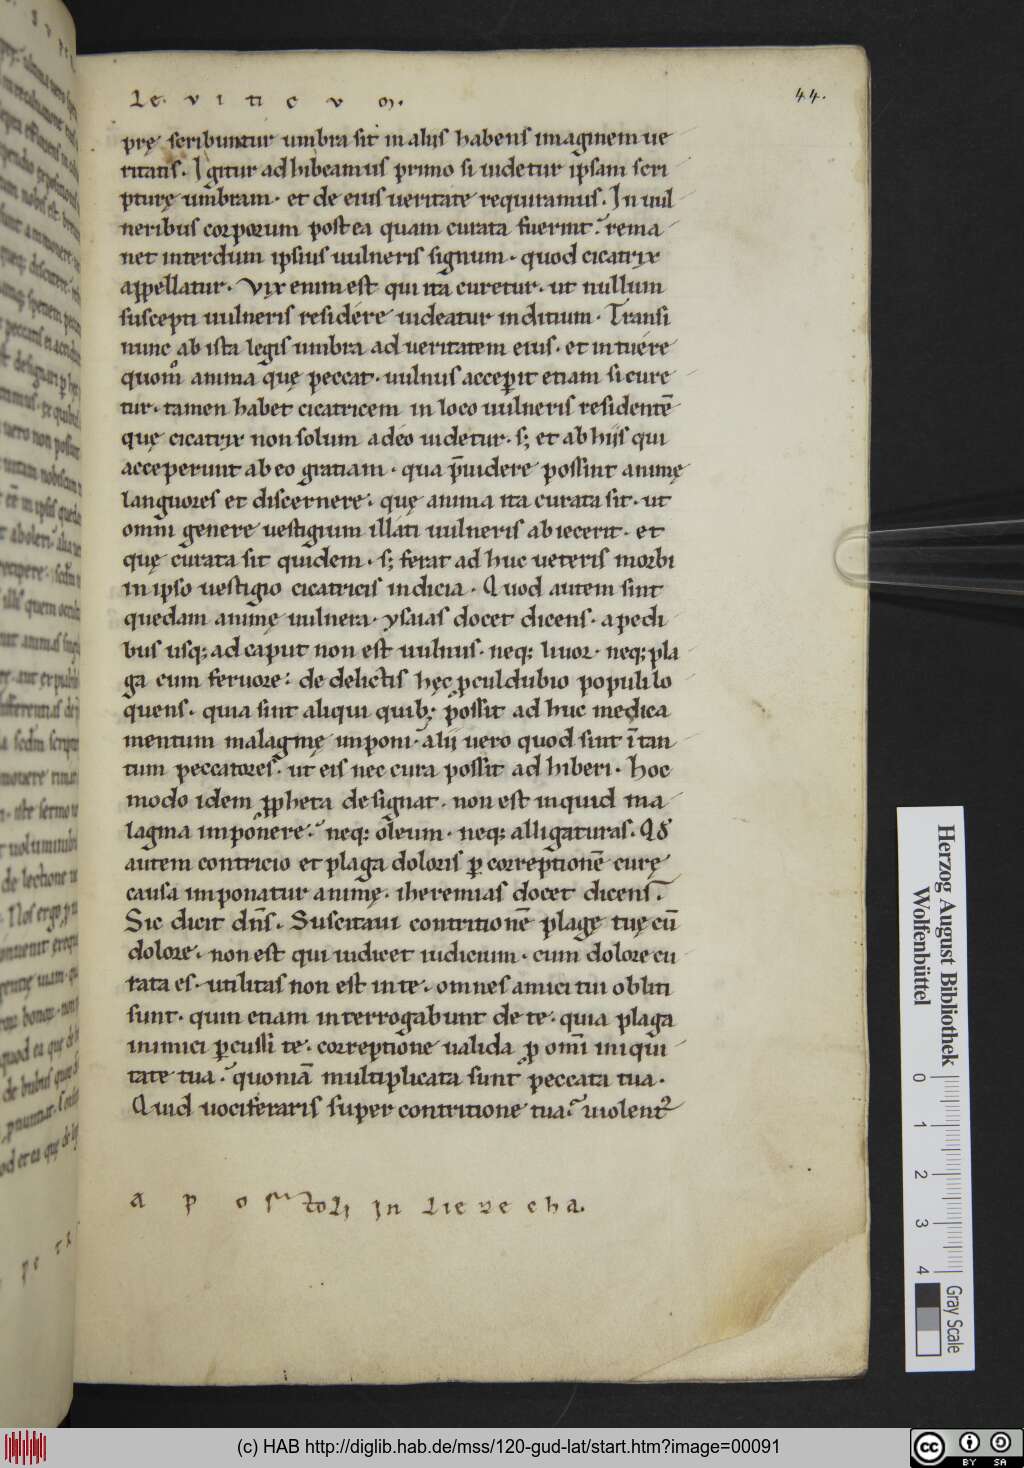 Le. v i ti c v m.
44.
pre̜ scribuntur umbra sit in aliis habens imaginem ue
ritatis. Igitur adhibeamus primo si uidetur ipsam scri
pture̜ umbram. et de eius ueritate requiramus. In uul
neribus corporum postea quam curata fuerint. rema
net interdum ipsius uulneris signum. quod cicatrix
appellatur. Vix enim est qui ita curetur. ut nullum
suscepti uulneris residere uideatur inditium. Transi
nunc ab ista legis umbra ad ueritatem eius. et intuere
quom̊ anima que̜ peccat. uulnus acceperit etiam si cure
tur. tamen habet cicatricem in loco uulneris residentē
que̜ cicatrix non solum adeo uidetur. s; et ab hiis qui
acceperunt ab eo gratiam. qua p̄uidere possint anime̜
languores et discernere. que̜ anima ita curata sit. ut
omni genere uestigium illati uulneris abiecerit. et
que̜ curata sit quidem. s; ferat ad huc ueteris morbi
in ipso uestigio cicatricis indicia. Quod autem sint
quedam anime̜ uulnera. ysaias docet dicens. a pedi
bus usq; ad caput non est uulnus. neq; liuor. neq; pla
ga cum feruore: de delictis he̜c ꝓculdubio populi lo
quens. quia sint aliqui quib; possit ad huc medica
mentum malagme̜ imponi. alii uero quod sint ītan
tum peccatores. ut eis nec cura possit adhiberi. hoc
modo idem ꝓpheta designat. non est inquid ma
lagma imponere. neq; oleum. neq; alligaturas. Qd
autem contricio et plaga doloris ꝑ correptionē cure̜
causa imponatur anime̜. iheremias docet dicens.
Sic dicit dn̄s. Suscitaui contritionē plage̜ tue̜ cū
dolore. non est qui iudicet iudicium. cum dolore cu
rata es. utilitas non est in te. omnes amici tui obliti
sunt. quin etiam interrogabunt de te. quia plaga
inimici ꝑcussi te. correptione ualida ꝓ omī iniqui
tate tua. quoniā multiplicata sunt peccata tua.
Quid uociferaris super contritione tua. uiolent᷑
a p o stoli in
Herzog August Bibliothek
Wolfenbüttel
0 1 2 3 4
Gray Scale
(c) HAB http://diglib.hab.de/mss/120-gud-lat/start.htm?image=00091
cc BY SA